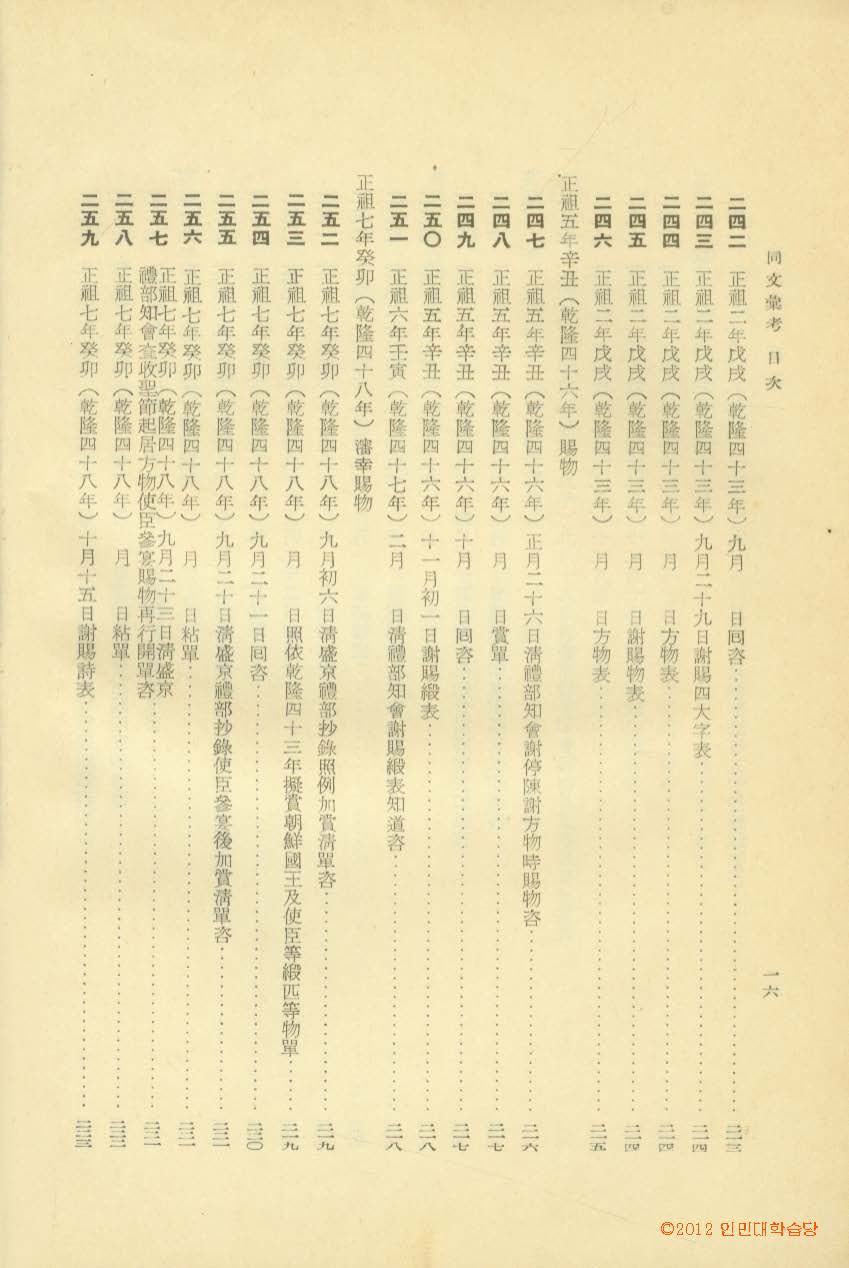 同文彙考 目次 一六
二四二 正祖二年戊戌（乾隆四十三年）九月 日回咨……二一三
二四三 正祖二年戊戌（乾隆四十三年）九月二十九日謝賜四大字表……二一四
二四四 正祖二年戊戌（乾隆四十三年） 月 日方物表……二一四
二四五 正祖二年戊戌（乾隆四十三年） 月 日謝賜物表……二一四
二四六 正祖二年戊戌（乾隆四十三年） 月 日方物表……二一五
正祖五年辛丑（乾隆四十六年）賜物
二四七 正祖五年辛丑（乾隆四十六年）正月二十六日淸禮部知會謝停陳謝方物時賜物咨……二一六
二四八 正祖五年辛丑（乾隆四十六年） 月 日賞單……二一七
二四九 正祖五年辛丑（乾隆四十六年）十月 日回咨……二一七
二五〇 正祖五年辛丑（乾隆四十六年）十一月初一日謝賜緞表……二一八
二五一 正祖六年壬寅（乾隆四十七年）二月 日淸禮部知會謝賜緞表知道咨……二一八
正祖七年癸卯（乾隆四十八年）瀋幸賜物
二五二 正祖七年癸卯（乾隆四十八年）九月初六日淸盛京禮部抄錄照例加賞淸單咨……二一九
二五三 正祖七年癸卯（乾隆四十八年） 月 日照依乾隆四十三年擬賞朝鮮國王及使臣等緞匹等物單……二一九
二五四 正祖七年癸卯（乾隆四十八年）九月二十一日回咨……二二〇
二五五 正祖七年癸卯（乾隆四十八年）九月二十日淸盛京禮部抄錄使臣參宴後加賞淸單咨……二二一
二五六 正祖七年癸卯（乾隆四十八年） 月 日粘單……二二一
二五七 正祖七年癸卯（乾隆四十八年）九月二十三日淸盛京
禮部知會查收聖節起居方物使臣參宴賜物再行開單咨……二二一
二五八 正祖七年癸卯（乾隆四十八年） 月 日粘單……二二二
二五九 正祖七年癸卯（乾隆四十八年）十月十五日謝賜詩表……二二三
©2012 인민대학습당